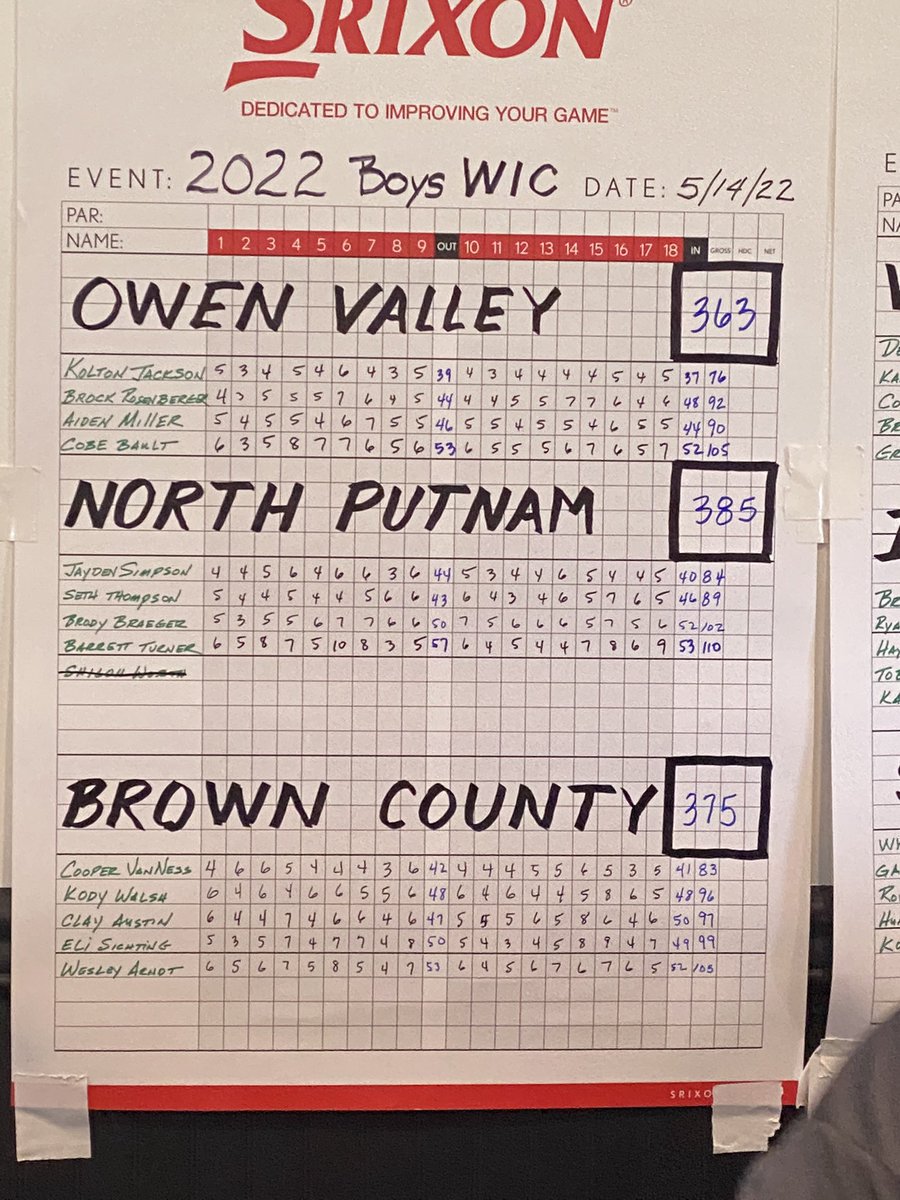 SRIXON®
DEDICATED TO IMPROVING YOUR GAME™
EVENT: 2022 Boys WIC DATE: 5/14/22
PAR:
NAME: 1 2 3 4 5 6 7 8 9 OUT 10 11 12 13 14 15 16 17 18 IN GROSS HDC NET
OWEN VALLEY 363
KOLTON JACKSON 5 3 4 5 4 6 4 3 5 39 4 3 4 4 4 4 5 4 5 37 76
BROCK ROSENBERGER 4 3 5 5 5 7 6 4 5 44 4 4 5 5 7 7 6 4 6 48 92
AIDEN MILLER 5 4 5 5 4 6 7 5 5 46 5 5 4 5 5 4 6 5 5 44 90
COBE BAULT 6 3 5 8 7 7 6 5 6 53 6 5 5 5 6 7 6 5 7 52 105
NORTH PUTNAM 385
JAYDEN SIMPSON 4 4 5 6 4 6 6 3 6 44 5 3 4 4 6 5 4 4 5 40 84
SETH THOMPSON 5 4 4 5 4 4 5 6 6 43 6 4 3 4 6 5 7 6 5 46 89
BRODY BRAEGER 5 3 5 5 6 7 7 6 6 50 7 5 6 6 6 5 7 5 6 52/102
BARRETT TURNER 6 5 8 7 5 10 8 3 5 57 6 4 5 4 4 7 8 6 9 53 110
SHILOH NORTH
BROWN COUNTY 375
COOPER VANNESS 4 6 6 5 4 4 4 3 6 42 4 4 4 5 5 6 5 3 5 41 83
KODY WALSH 6 4 6 4 6 6 5 5 6 48 6 4 6 4 4 5 8 6 5 48 96
CLAY AUSTIN 6 4 4 7 4 6 6 4 6 47 5 5 5 6 5 8 6 4 6 50 97
ELI SICHTING 5 3 5 7 4 7 7 4 8 50 5 4 3 4 5 8 9 4 7 49 99
WESLEY ARNOT 6 5 6 7 5 8 5 4 7 53 6 4 5 6 7 6 7 6 5 52/105
SRIXO